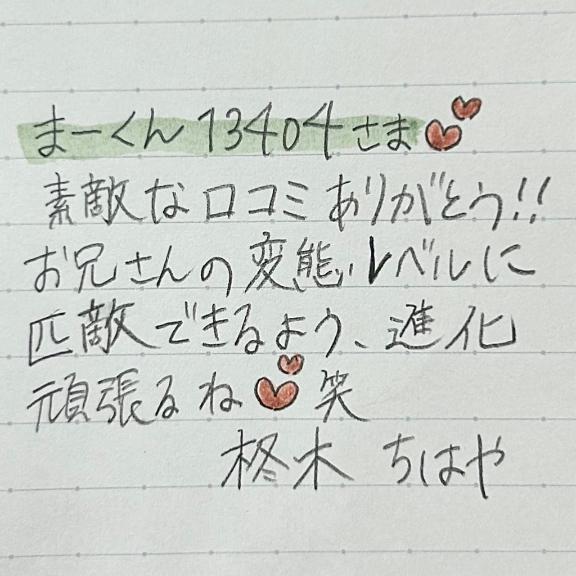 まーくん13404さま
素敵な口コミありがとう!!
お兄さんの変態レベルに
匹敵できるよう、進化
頑張るね笑
柊木 ちはや